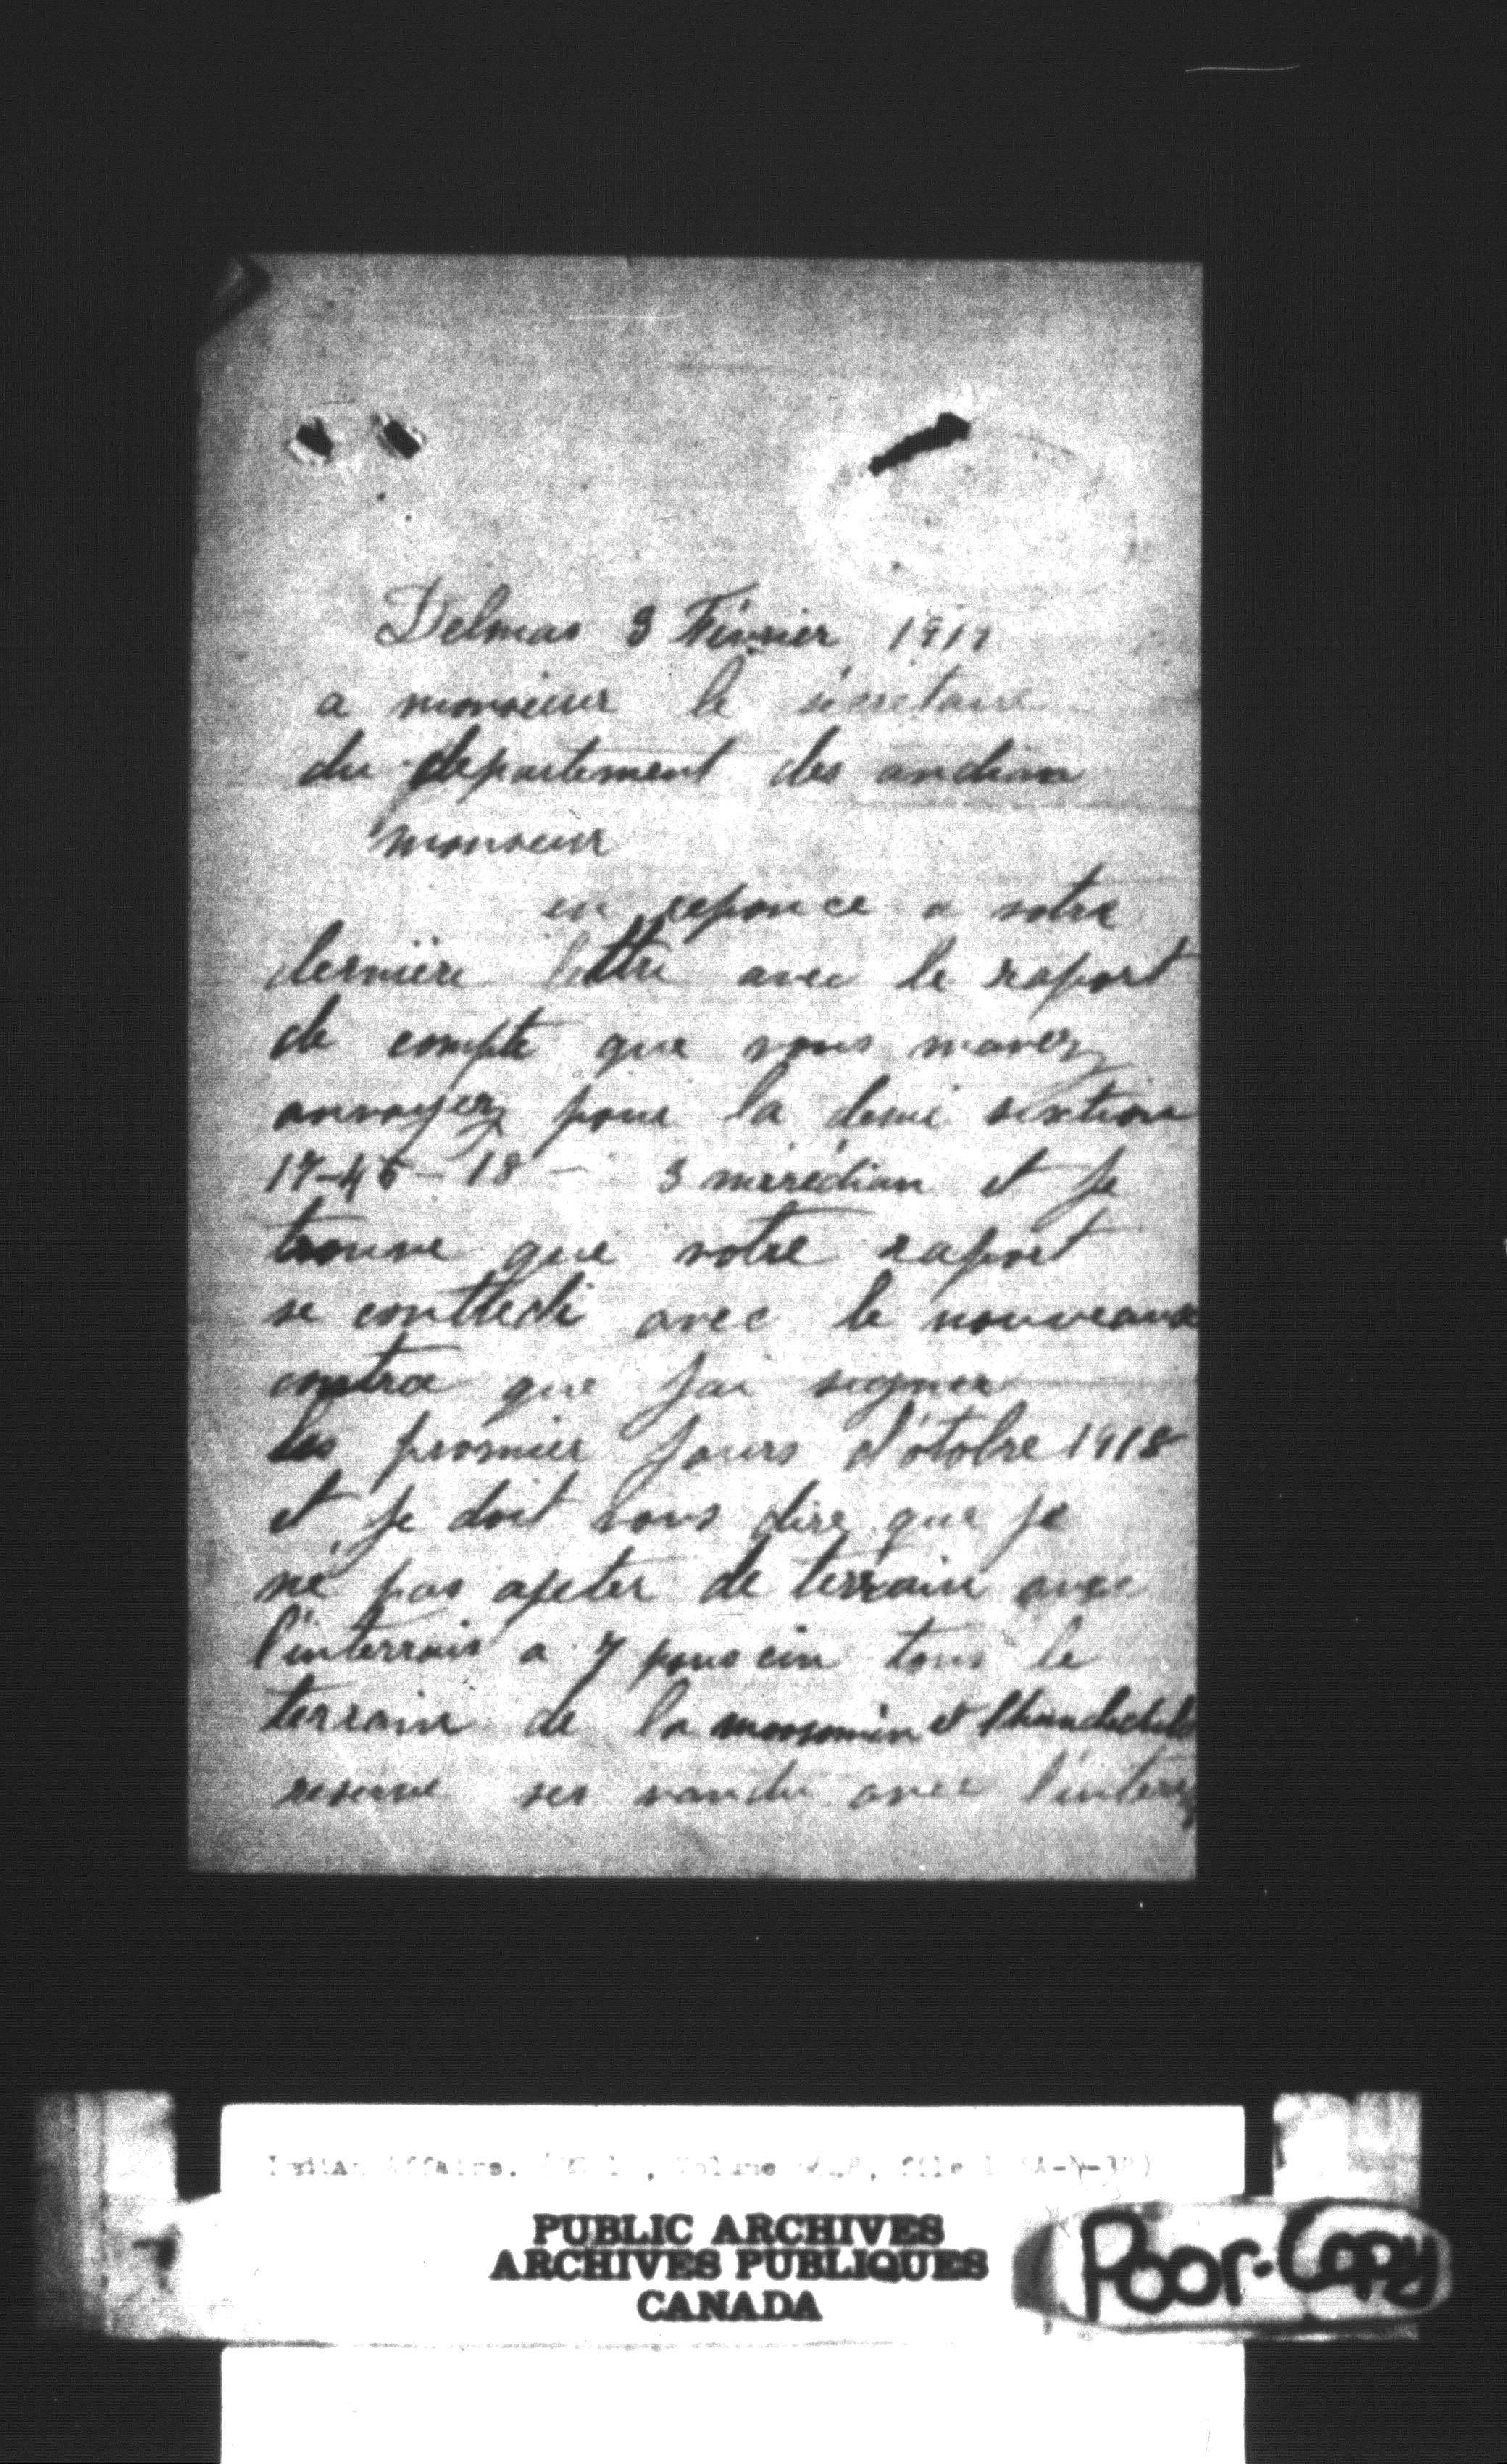 Delmas 3 Février 1919
a monsieur le sécretaire
du departement des andian
monsieur
en reponce a votre
dernière lettre avec le raport
de compte que vous mavez
anvoyez pour la demi sextion
17-46-18 - 3 meredian et je
trouve que votre raport
se conttredi avec le nouveaux
contra que jai signer
les promier jours d'otobre 1918
et je doit vous dire que je
né pas ajeter de terrain avec
l'interrais a 7 pous cin tous le
terrain de la moosomin et thundechild
reserve ses vandu avec l'interez
Indian Affairs. Volume file
PUBLIC ARCHIVES
ARCHIVES PUBLIQUES
CANADA
Poor-Copy